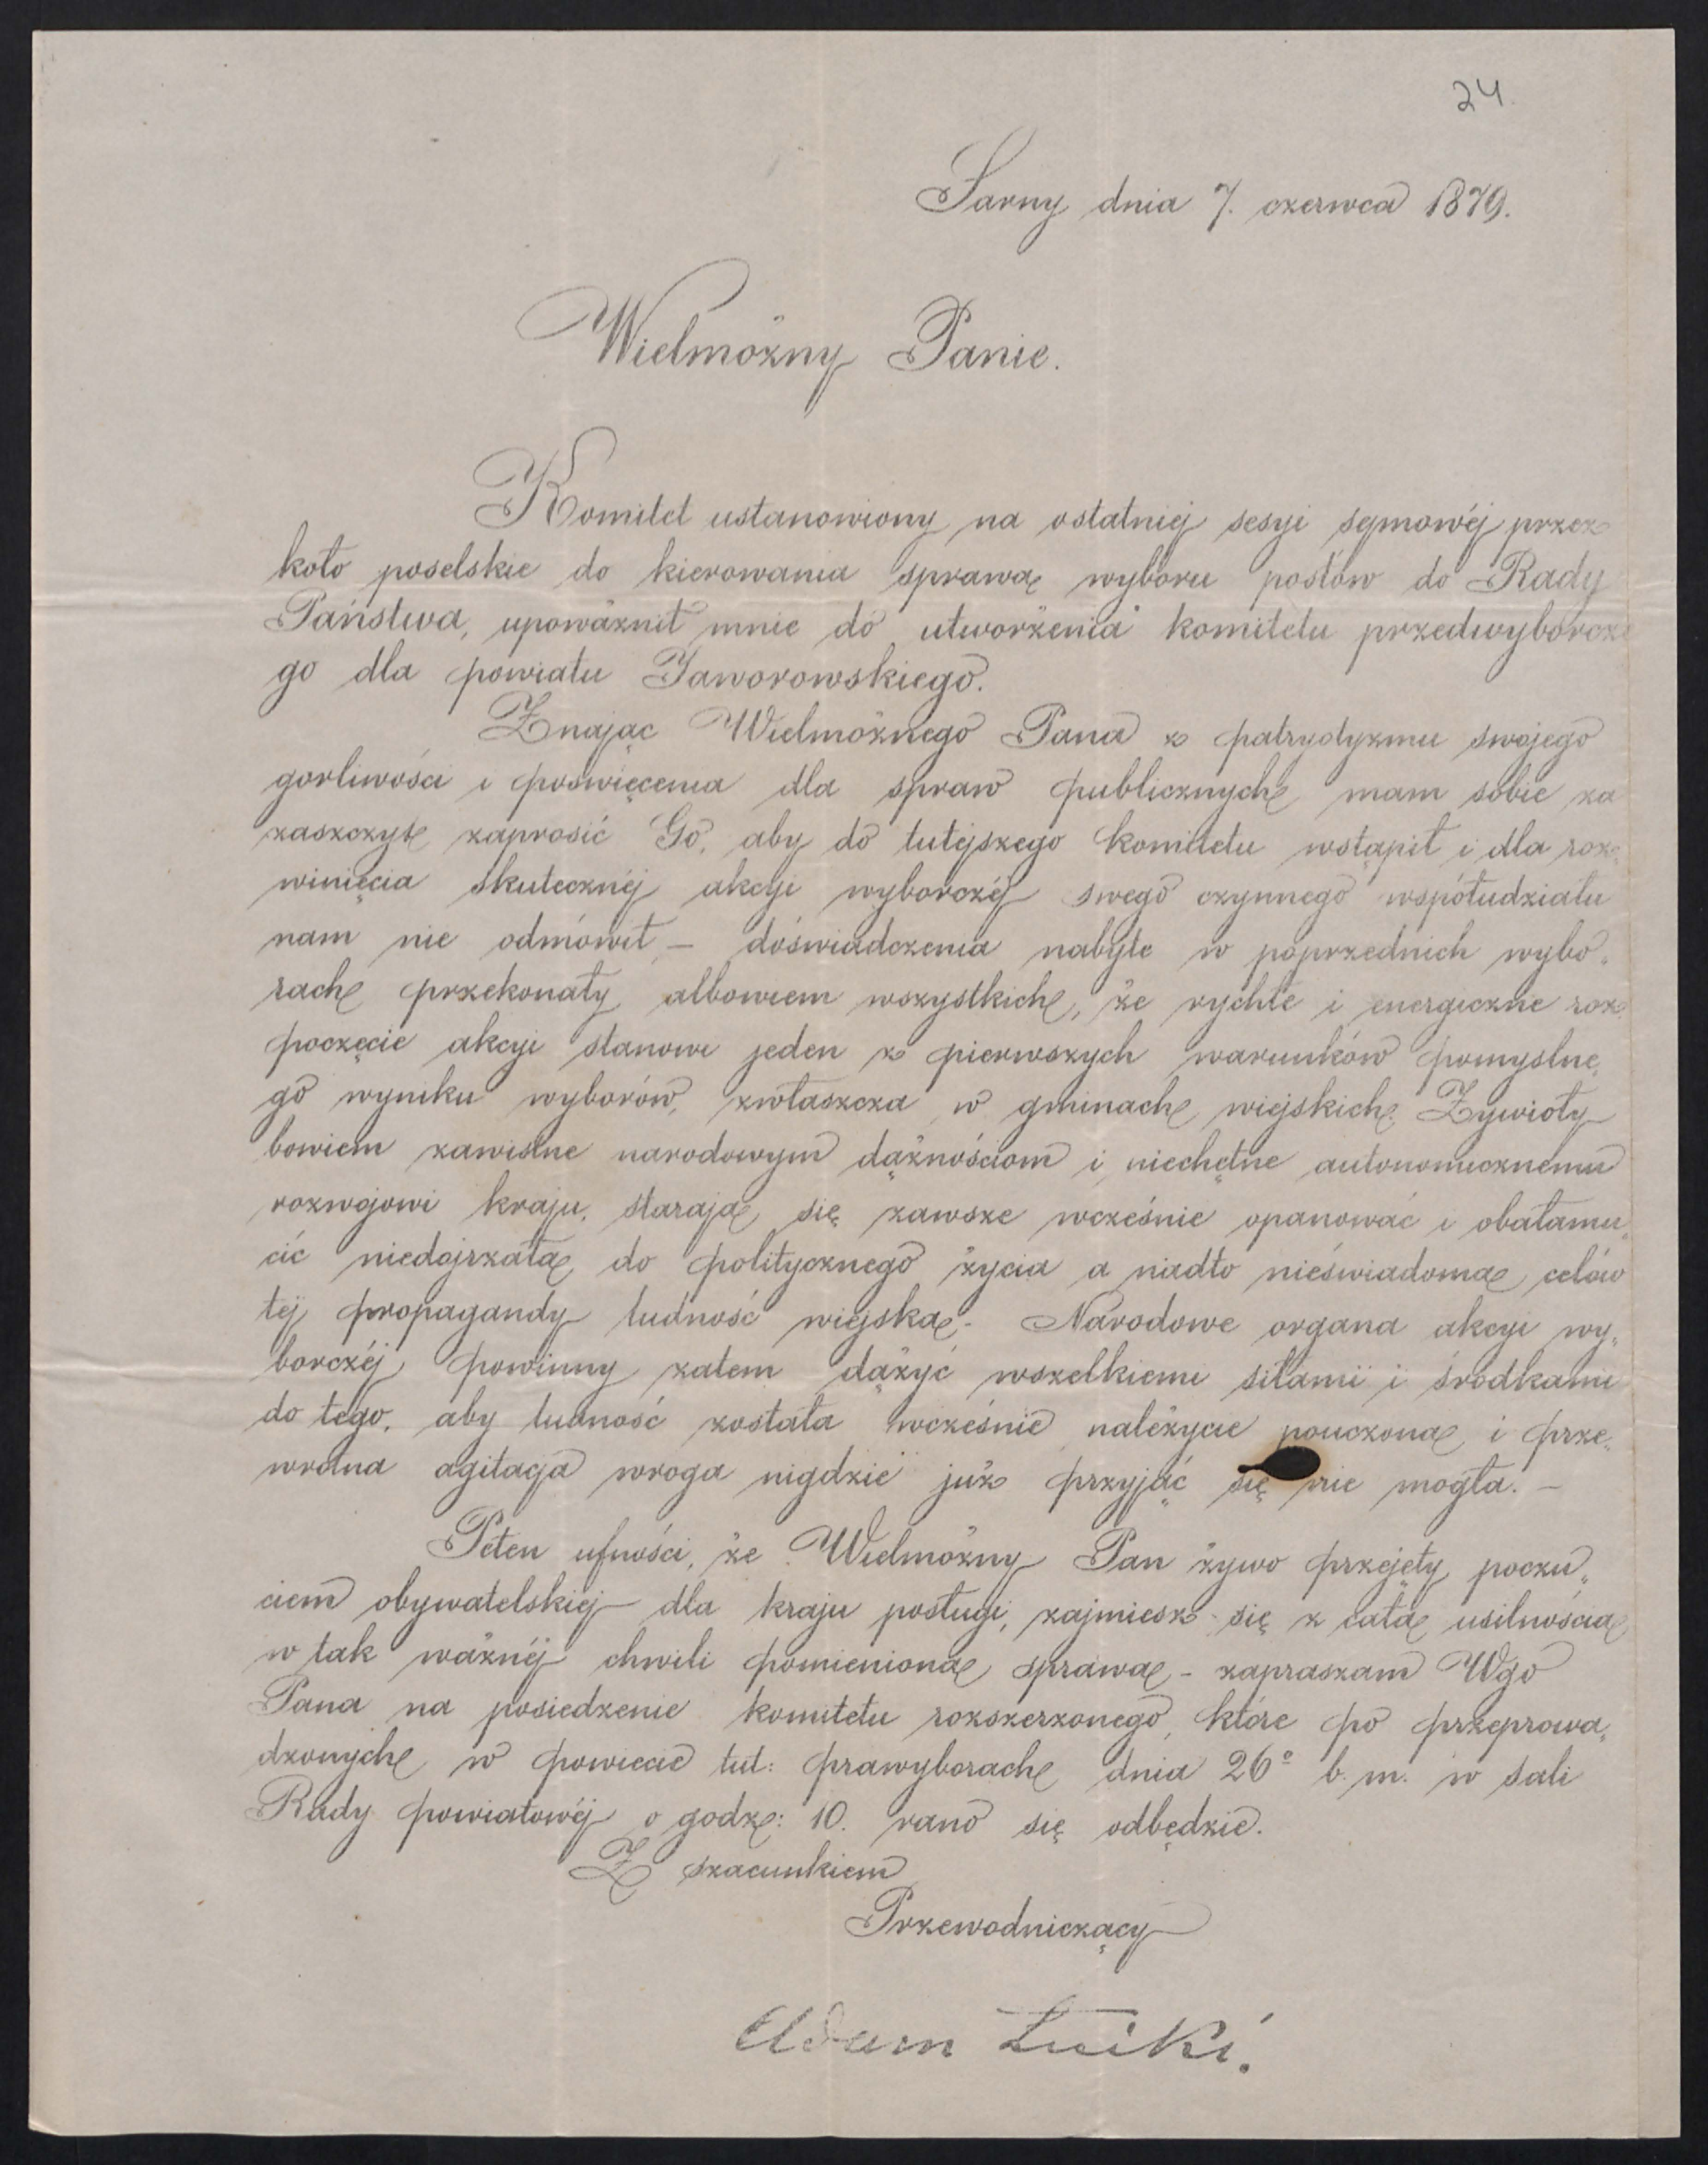 24
Sarny dnia 7. czerwca 1879.
Wielmożny Panie.
Komitet ustanowiony na ostatniej sesyi sejmowéj przez
koło poselskie do kierowania sprawą wyboru posłów do Rady
Państwa, upoważnił mnie do utworzenia komitetu przedwyborcze
go dla powiatu Jaworowskiego.
Znając Wielmożnego Pana z patryotyzmu swojego
gorliwości i poświęcenia dla spraw publicznych, mam sobie za
zaszczyt zaprosić Go, aby do tutejszego komitetu wstąpił i dla roz„
winięcia skutecznéj akcyi wyborczéj swego czynnego współudziału
nam nie odmówił, — doświadczenia nabyte w poprzednich wybo„
rach przekonały albowiem wszystkich, że rychłe i energiczne roz„
poczęcie akcyi stanowi jeden z pierwszych warunków pomyslne„
go wyniku wyborów, zwłaszcza w gminach wiejskich. Żywioły
bowiem zawistne narodowym dążnościom i niechętne autonomicznemu
rozwojowi kraju, starają się zawsze wcześnie opanować i obałamu„
cić niedojrzałą do politycznego życia a nadto nieświadomą celów
tej propagandy ludność wiejską. Narodowe organa akcyi wy„
borczéj powinny zatem dążyć wszelkiemi siłami i środkami
do tego, aby ludność została wcześnie należycie pouczoną i prze„
wrotna agitacja wroga nigdzie już przyjąć się nie mogła. —
Pełen ufności, że Wielmożny Pan żywo przejęty poczu„
ciem obywatelskiej dla kraju posługi, zajmiesz się z całą usilnością
w tak ważnéj chwili pomienioną sprawą - zapraszam Wgo
Pana na posiedzenie komitetu rozszerzonego, które po przeprowa„
dzonych w powiecie tut: prawyborach dnia 26º b. m. w sali
Rady powiatowéj o godz: 10. rano się odbędzie.
Z szacunkiem
Przewodniczący
Adam